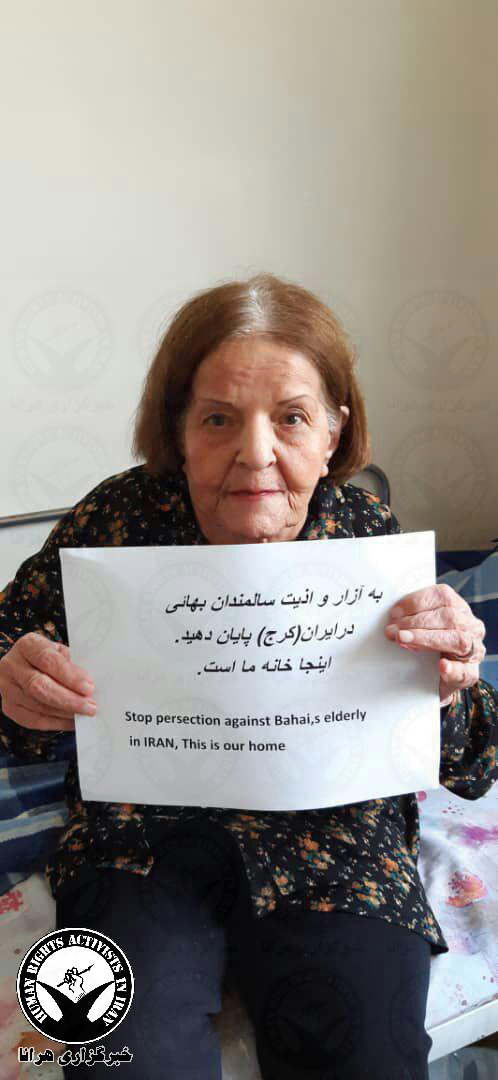 به آزار و اذیت سالمندان بهائی
درایران(کرج) پایان دهید.
اینجا خانه ما است.
Stop persection against Bahai,s elderly
in IRAN, This is our home
HUMAN RIGHTS ACTIVISTS IN IRAN
خبرگزاری هرانا